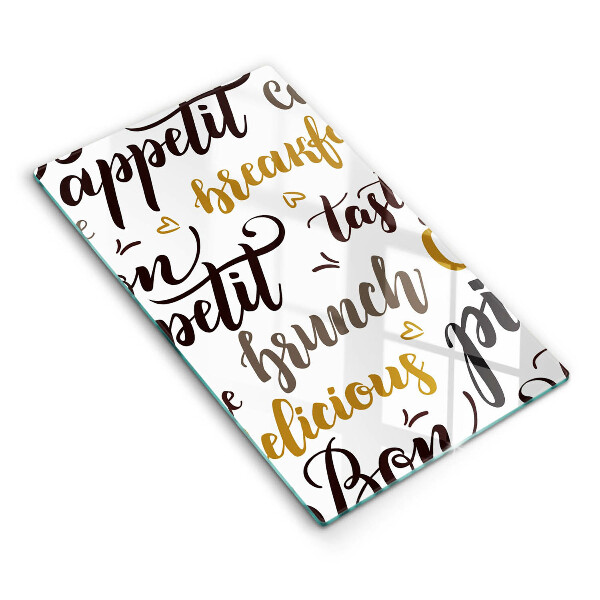 appetit
breakf
tast
Bon
petit
brunch
elicious
pi
Bon